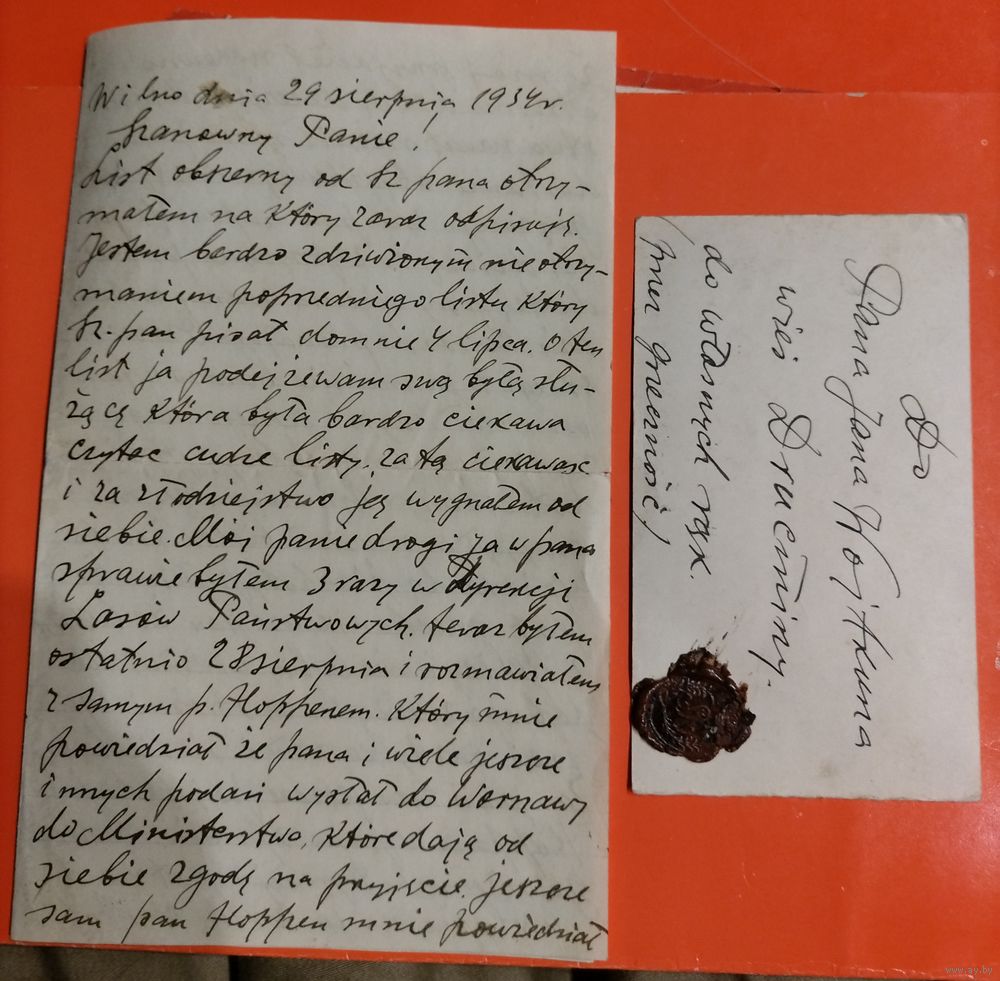 Wilno dnia 29 sierpnia 1934 r.
Szanowny Panie!
List obszerny od Sz pana otrzy-
małem na który zaraz odpisuję.
Jestem bardzo zdziwionym nieotrzy-
maniem poprzedniego listu który
Sz. pan pisał domnie 4 lipca. O ten
list ja podejżewam swą byłą słu-
żącą która była bardzo ciekawa
czytac cudze listy. za tą ciekawosc
i za złodziejstwo ją wygnałem od
siebie. Mój panie drogi ja w pana
sprawie byłem 3 razy w Dyrekcji
Lasów Państwowych. teraz byłem
ostatnio 28 sierpnia i rozmawiałem
z samym p. Hoppenem. Który mnie
powiedział że pana i wiele jeszcze
innych podań wysłał do Warszawy
do Ministerstwa, które dają od
siebie zgodę na przyjęcie. jeszcze
sam pan Hoppen mnie powiedział
Do
Pana Jana Wojtkuna
wieś Drucminy.
do własnych rąk.
(przez grzeczność)
www.ay.by